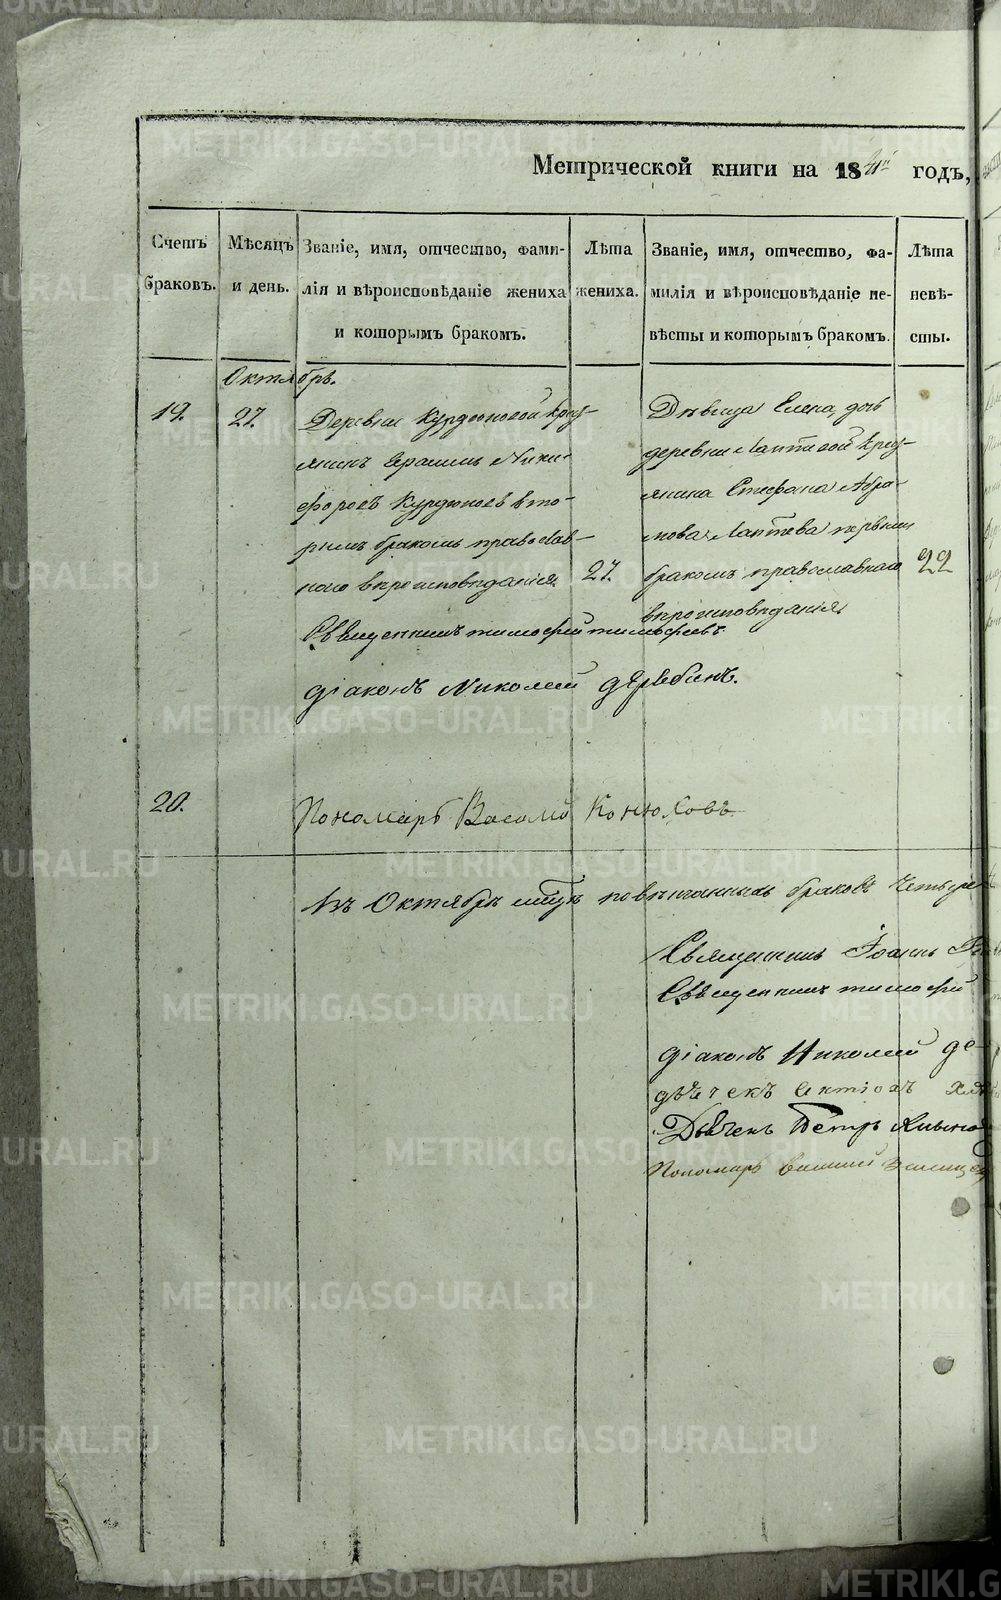 Метрической книги на 18 годъ,
Счетъ браковъ.
Мѣсяцъ и день.
Званіе, имя, отчество, фами-
лія и вѣроисповѣданіе жениха
и которымъ бракомъ.
Лѣта
жениха.
Званіе, имя, отчество, фа-
милія и вѣроисповѣданіе не-
вѣсты и которымъ бракомъ.
Лѣта
невѣ-
сты.
Октябрь.
19.
27.
Деревни Курдюковой крес-
Ники-
форовъ Курдюковъ вто-
рымъ бракомъ православ-
наго вѣроисповѣданія.
27.
Дѣвица Елена, дочь
деревни Лаптевой крес-
янина Стефана Абра-
мова Лаптева первымъ
бракомъ православнаго
вѣроисповѣданія
22
Священникъ тимофей тимофеевъ
діаконъ Николай дерябинъ.
20.
Пономарь Конюховъ
Въ Октябрѣ повѣнчанныхъ браковъ четыре
Священникъ Іоаннъ
Священникъ тимофей
діаконъ Николай де-
дьячекъ
Дьячекъ Петръ
Пономарь
METRIKI.GASO-URAL.RU